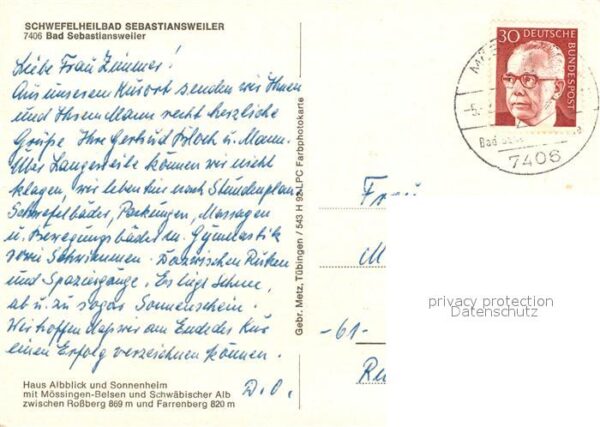 SCHWEFELHEILBAD SEBASTIANSWEILER
7406 Bad Sebastiansweiler
Liebe Frau Zimmer!
Aus unserem Kurort senden wir Ihnen
und Ihrem Mann recht herzliche
Grüße Ihre Gertrud Bloch u. Mann.
Über Langeweile können wir nicht
klagen, wir leben hier nach Stundenplan
Schwefelbäder, Packungen, Massagen
u. Bewegungsbäder m. Gymnastik
sowie Schwimmen. Dazwischen Ruhen
und Spaziergänge. Es liegt Schnee,
ab u. zu sogar Sonnenschein.
Wir hoffen daß wir am Ende der Kur
einen Erfolg verzeichnen können.
D.O.
Haus Albblick und Sonnenheim
mit Mössingen-Belsen und Schwäbischer Alb
zwischen Roßberg 869 m und Farrenberg 820 m
Gebr. Metz, Tübingen / 543 H 92 LPC Farbphotokarte
30 DEUTSCHE BUNDESPOST
-5.
Bad
7406
Frau
M
-61-
privacy protection
Datenschutz